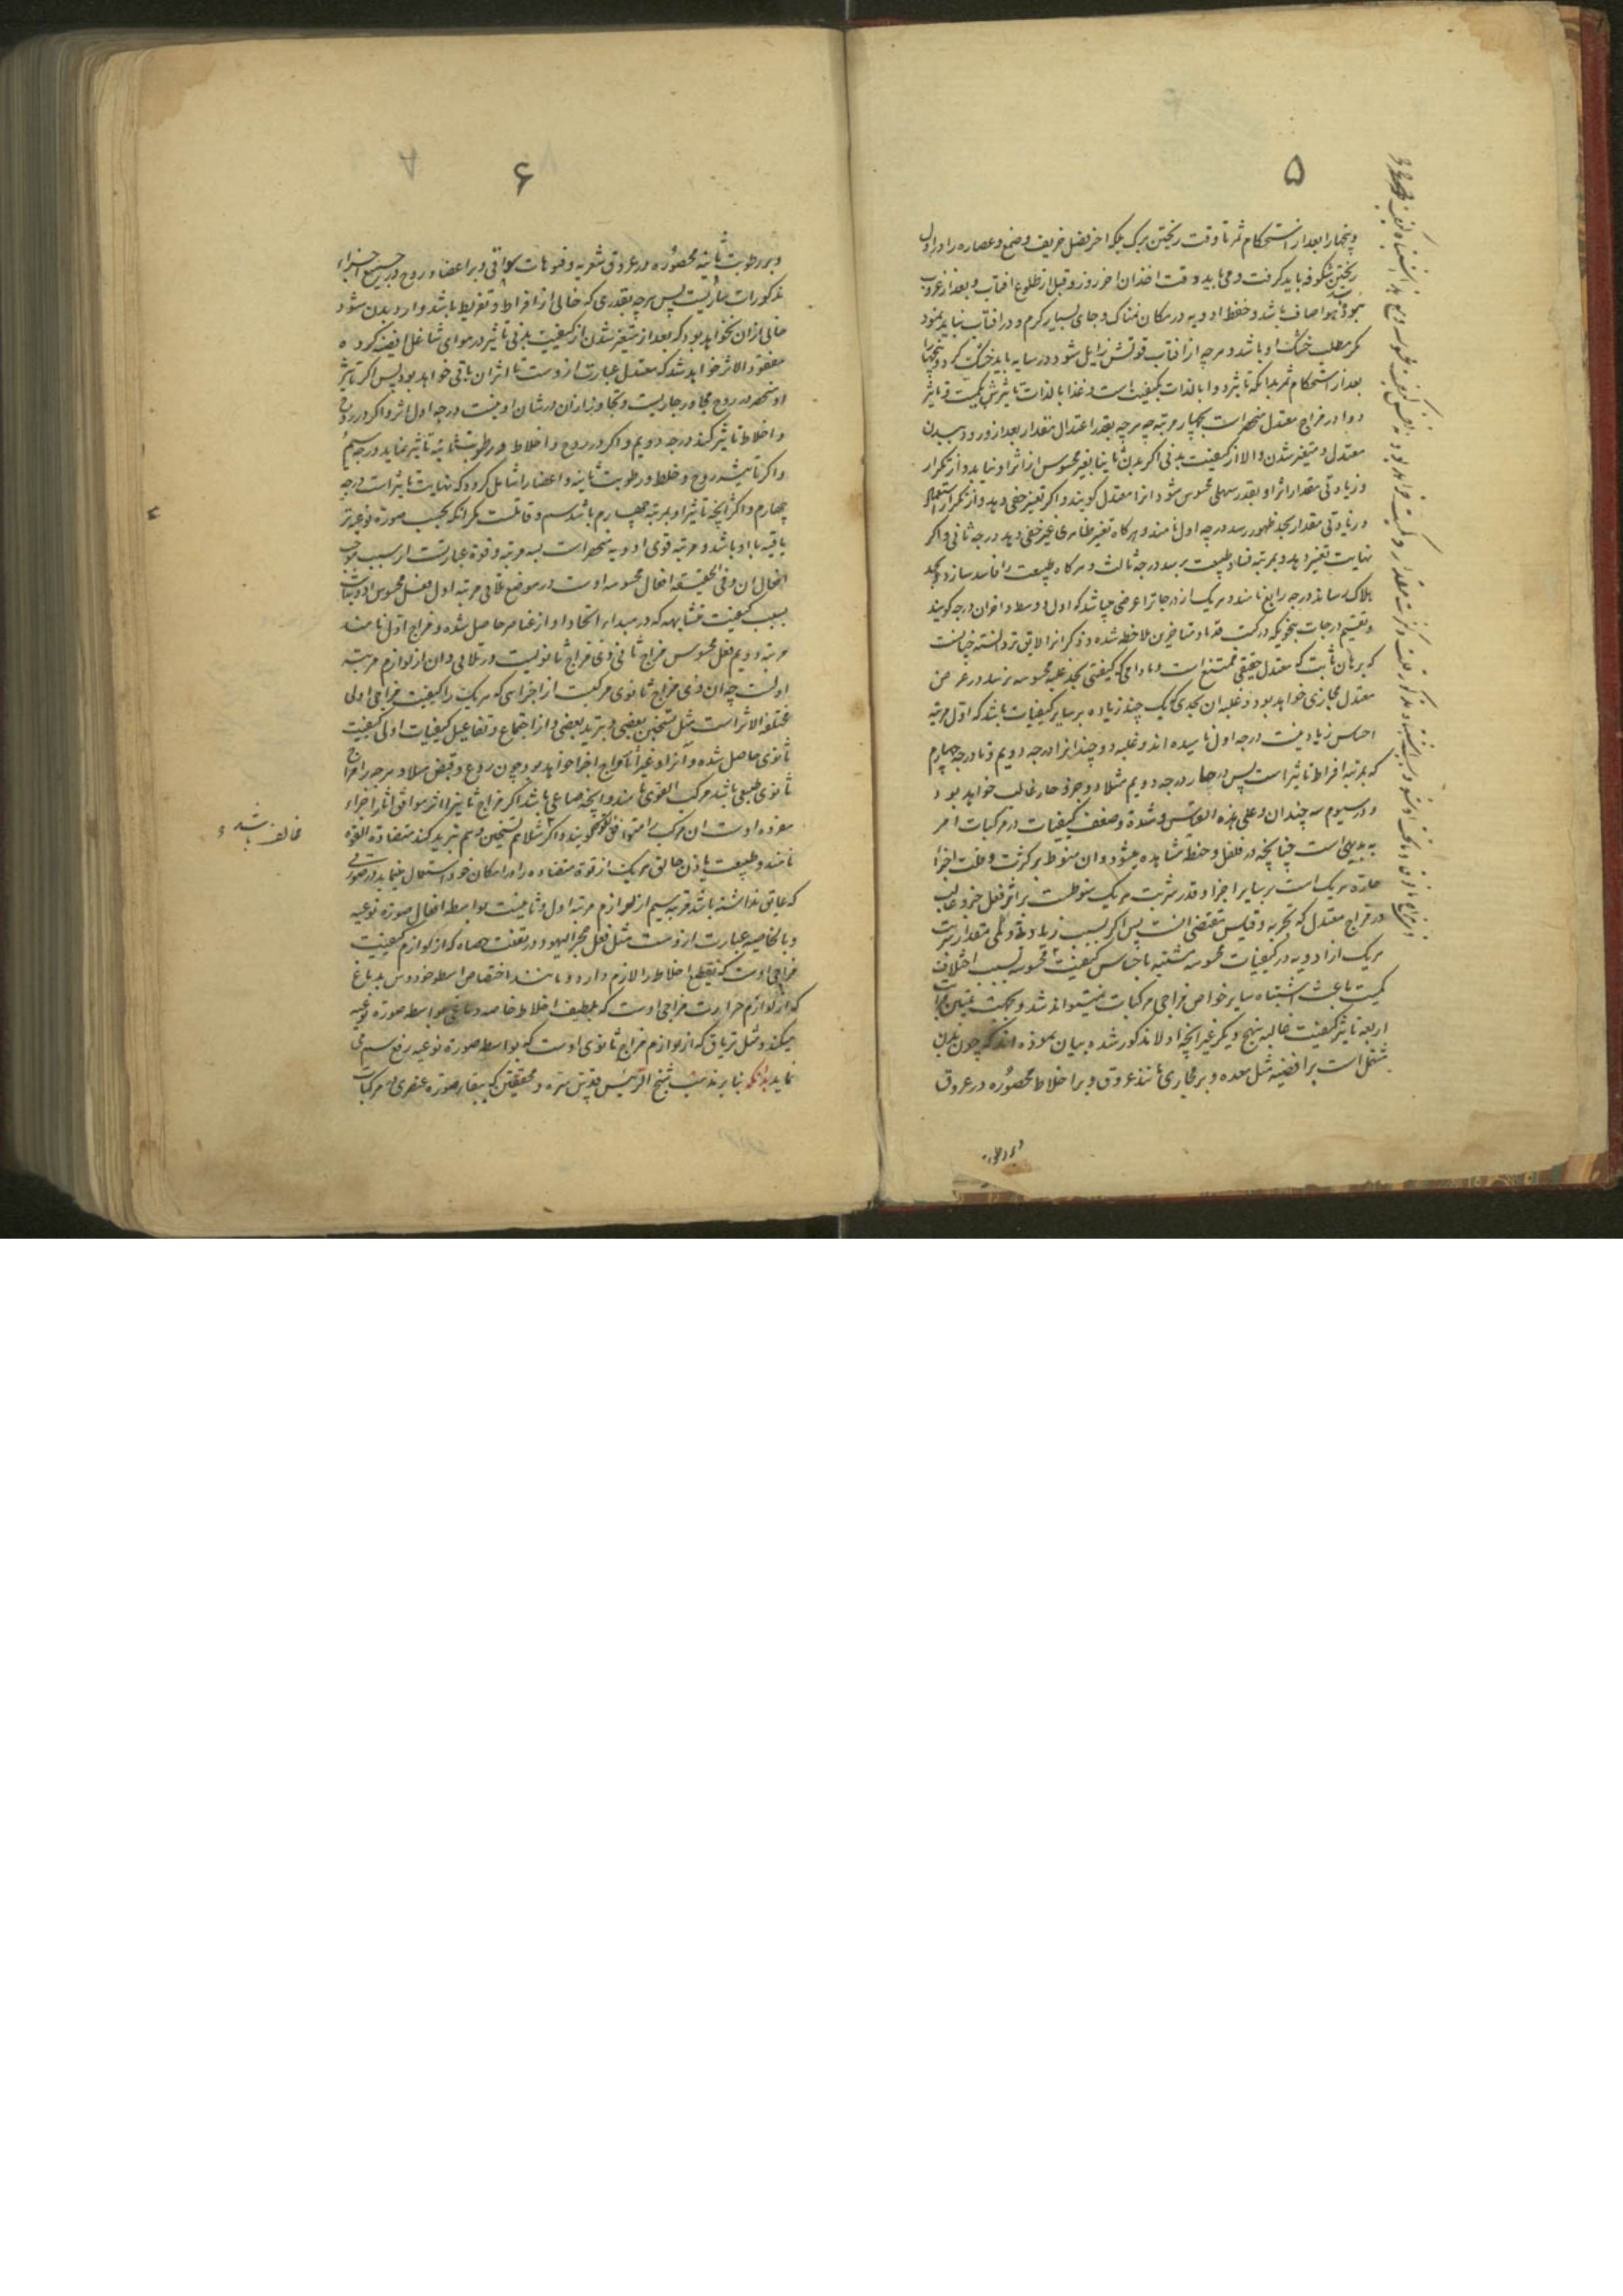 ۵
وبیخها را بعد از استحکام ثمر تا وقت ریختن برک بلکه اخر فصل خریف و صمغ و عصاره را در اول
ریختن شکوفه باید کرفت و می باید وقت اخذ ان اخر روز و قبل از طلوع افتاب و بعد از غروب
بوده هوا صاف باشد و حفظ ادویه در مکان نمناک و جای بسیار کرم و در افتاب نباید نمود
مکر مطلب خشک او باشد و هرچه از افتاب قوتش زایل شود در سایه باید خشک کرد و بیخها را
بعد از استحکام ثمر بدانکه تاثیر دوا بالذات بکیفیت است و غذا بالذات تاثیرش بکمیت و تاثیر
دوا در مزاج معتدل منحصر است بچهار مرتبه چه هرچه بقدر اعتدال مقدار بعد از ورود ببدن
معتدل و متغیر شدن والا از کیفیت بدنی اکر بدن ثانیا بغیر محسوس از اثر او نیاید و از تکرار
و زیادتی مقدار اثر او بقدر سهلی محسوس شود انرا معتدل کویند و اکر تغیر خفی دهد و از تکرار استعمال
و زیادتی مقدار بحد ظهور رسد درجه اول نامند و هرکاه تغیر ظاهری غیر خفی دهد درجه ثانی و اکر
نهایت تغیر دهد و بمرتبه فساد طبیعت نرسد درجه ثالث و هرکاه طبیعت را فاسد سازد و بحد
هلاک رساند درجه رابع نامند و هریک از درجات را عرضی میباشد که اول و وسط و اخر ان درجه کویند
و تقسیم درجات بنحویکه در کتب قدما و متاخرین ملاحظه شده و ذکر انرا لایق تر دانسته چنانست
که برهان ثابت که معتدل حقیقی ممتنع است و مادامی که کیفیتی بحد غلبه محسوسه نرسد در عرض
معتدل مجازی خواهد بود و غلبه ان بحدی که یک چند زیاده بر سایر کیفیات باشد که اول مرتبه
احساس زیادتیست درجه اول نامیده اند و غلبه دو چند انرا درجه دویم و تا درجه چهارم
که مرتبه افراط تاثیر است پس در حار درجه دویم مثلا دو جزو حار غالب خواهد بود
و در سیوم سه چندان و علی هذه القیاس و شدة و ضعف کیفیات در مرکبات امر
بدیهی است چنانچه در فلفل و حنطه مشاهده میشود و ان منوط بر کثرت و قلت اجزا
حاره هریک است بر سایر اجزا و قدر شربت هریک منوطست بر اثر فعل جزو غالب
در مزاج معتدل که تجربه و قیاس مقتضی انست پس اکر بسبب زیادتی و کمی مقدار شربت
هریک از ادویه در کیفیات محسوسه مشتبه باختاس کیفیت محسوسه بسبب اختلاف
کمیت باعث اشتباه سایر خواص مزاجی مرکبات نمیتواند شد و بجهت تعیین مراتب
اربعه تاثیر کیفیت غالبه بنهج دیکر غیر انچه اولا مذکور شده بیان نموده اند که چون بدن
مشتمل است بر افضیه مثل معده و بر مجاری مانند عروق و بر اخلاط محصوره در عروق
و بر رطوبت
۶
و بر رطوبت ثانیه محصوره در عروق شعریه و فوهات سواقی و بر اعضا و روح در جمیع اجزاء
مذکورات ساریست پس هرچه بقدری که خالی از افراط و تفریط باشد وارد بدن شود
خالی از ان نخواهد بود که بعد از متغیر شدن از کیفیت بدنی تاثیر در هوای شاغل افضیه کرده
مفقود الاثر خواهد شد که معتدل عبارت از وست تا اثر ان باقی خواهد بود پس اکر تاثیر
او منحصر در روح مجاور مجاریست و تجاوز از ان در شان او نیست درجه اول اثر و اکر در روح
و اخلاط تاثیر کند درجه دویم و اکر در روح و اخلاط و رطوبت ثانیه تاثیر نماید درجه سیم
و اکر تاثیرش روح و خلط و رطوبت ثانیه و اعضا را شامل کردد که نهایت تاثیر است درجه
چهارم و اکر انچه تاثیر او بمرتبه چهارم باشد سم و قاتلست مکر انکه بحسب صورة نوعیه تر
یاقیه با او باشد و مرتبه قوی ادویه منحصر است بسه مرتبه و قوة عبارتست از سبب موجب
افعال ان و فی الحقیقه افعال محسوسه اوست در موضع تلاقی مرتبه اول فعل محسوس ادویه است
بسبب کیفیت متشابهه که در مبداء اتحاد او از عناصر حاصل شده و مزاج اول نامند
مرتبه دویم فعل محسوس مزاج ثانی ذی مزاج ثانویست در تلاقی و ان از لوازم مرتبه
اولست چه ان ذی مزاج ثانوی مرکبست از اجزاسی که هریک را کیفیت مزاجی اولی
مختلفة الاثر است مثل تسخین بعضی و تبرید بعضی و از اجتماع و تفاعیل کیفیات اولی کیفیت
ثانوی حاصل شده و اثر او غیر اثر احاد اجزا خواهد بود چون ردع و قبض مثلا و هرچه را مزاج
ثانوی طبعی باشد مرکب القوی نامند و انچه صناعی باشد اکر مزاج ثانیرا اثر موافق اثار اجزاء
مفرده اوست ان مرکب را متوافق القوی کویند و اکر مثلا هم تسخین و هم تبرید کند متضادة القوه
نامند و طبیعت باذن خالق هریک از قوة متضاده را در امکان خود استعمال مینماید در صورتی
که عایق نداشته باشد مرتبه سیم از لوازم مرتبه اول و ثانیست بواسطه افعال صورة نوعیه
و بالخاصیه عبارت از وست مثل فعل حجر الیهود در تفتت حصاه که از لوازم کیفیت
مزاجی اوست که تقطیع اخلاط را لازم دارد و مانند اختصاص اسطوخودوس بدماغ
که از لوازم حرارت مزاجی اوست که تلطیف اخلاط خاصه دماغی بواسطه صورة نوعیه
میکند و مثل تریاق که از لوازم مزاج ثانوی اوست که بواسطه صورة نوعیه رفع سم می
نماید بدانکه بنا بر مذهب شیخ الرئیس قدس سره و محققین که ببقاء صورة عنصری در مرکبات
مخالف باشد